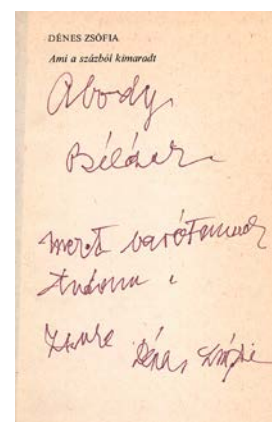 DÉNES ZSÓFIA
Ami a százból kimaradt
Abody
Bélának
mert barátomnak
tudom
Dénes Zsófia